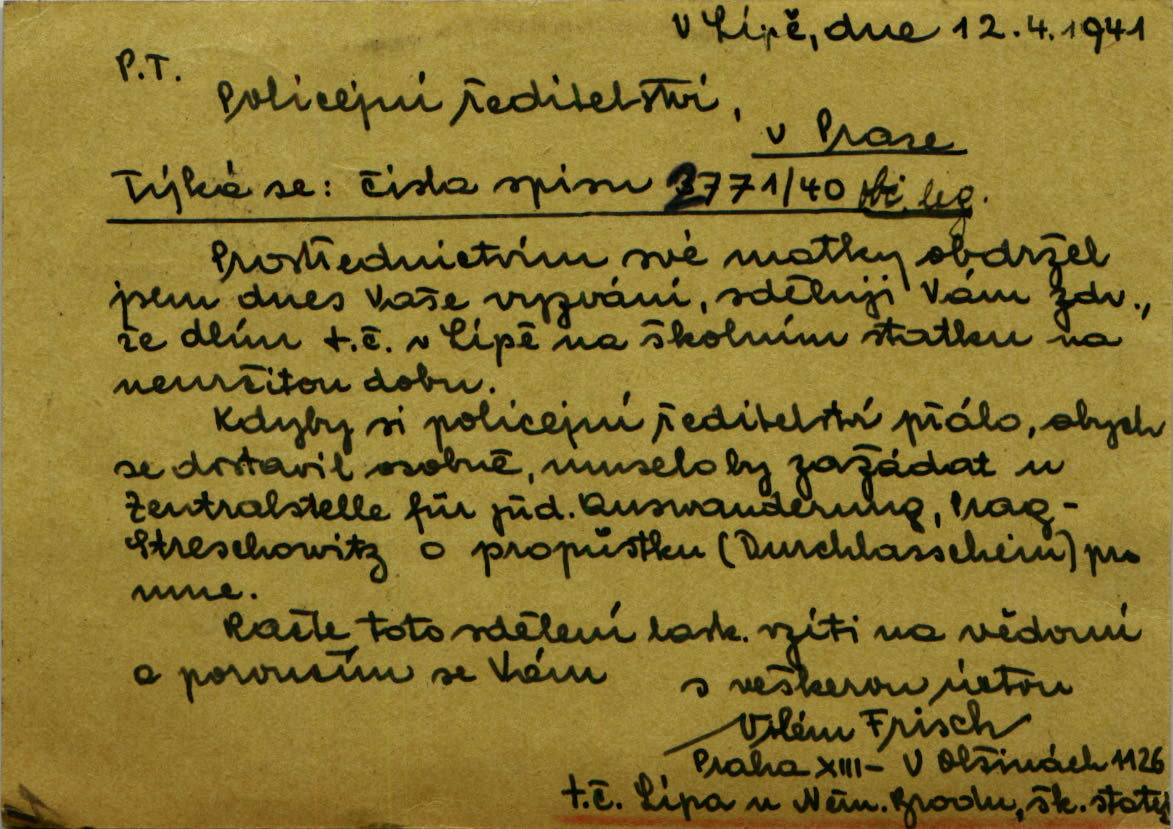 V Lípě, dne 12.4.1941
P.T.
Policejní ředitelství,
v Praze
Týká se: čísla spisu 2771/40 leg.
Prostřednictvím své matky obdržel
jsem dnes Vaše vyzvání, sděluji Vám zdv.,
že dlím t.č. v Lípě na školním statku na
neurčitou dobu.
Kdyby si policejní ředitelství přálo, abych
se dostavil osobně, muselo by zažádat u
Zentralstelle für jüd. Auswanderung, Prag-
Streschowitz o propůstku (Durchlasschein) pro
mne.
Račte toto sdělení lask. vzíti na vědomí
a poroučím se Vám
s veškerou úctou
Vilém Frisch
Praha XIII - V Olšinách 1126
t.č. Lípa u Něm. Brodu, šk. statek